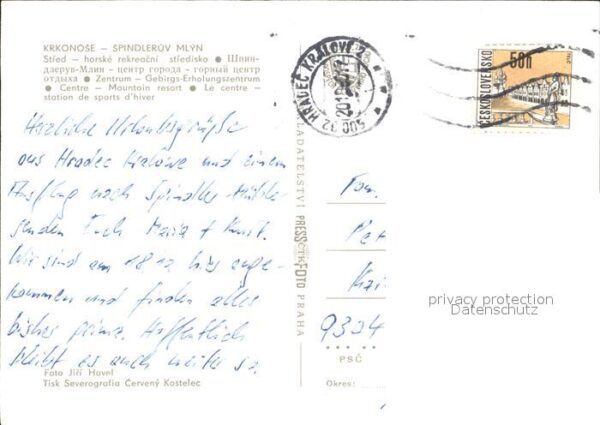 KRKONOŠE – ŠPINDLERŮV MLÝN
Střed – horské rekreační středisko ● Шпин-
длерув-Млин - центр города - горный центр
отдыха ● Zentrum - Gebirgs-Erholungszentrum
● Centre – Mountain resort ● Le centre –
station de sports d'hiver
Herzliche Urlaubsgrüße
aus Hradec Kralowe und einem
Ausflug nach Spindler-Mühle
senden Euch Maria + Kurt.
Wir sind am 18.12. hier ange-
kommen und finden alles
bisher prima. Hoffentlich
bleibt es auch weiter so.
Foto Jiří Havel
Tisk Severografia Červený Kostelec
PRESSFOTO PRAHA
HRADEC KRÁLOVÉ 2
500 03 2
50h
ČESKOSLOVENSKO
Fam.
Pet
Kai
9334
PSČ
Okres:
privacy protection
Datenschutz